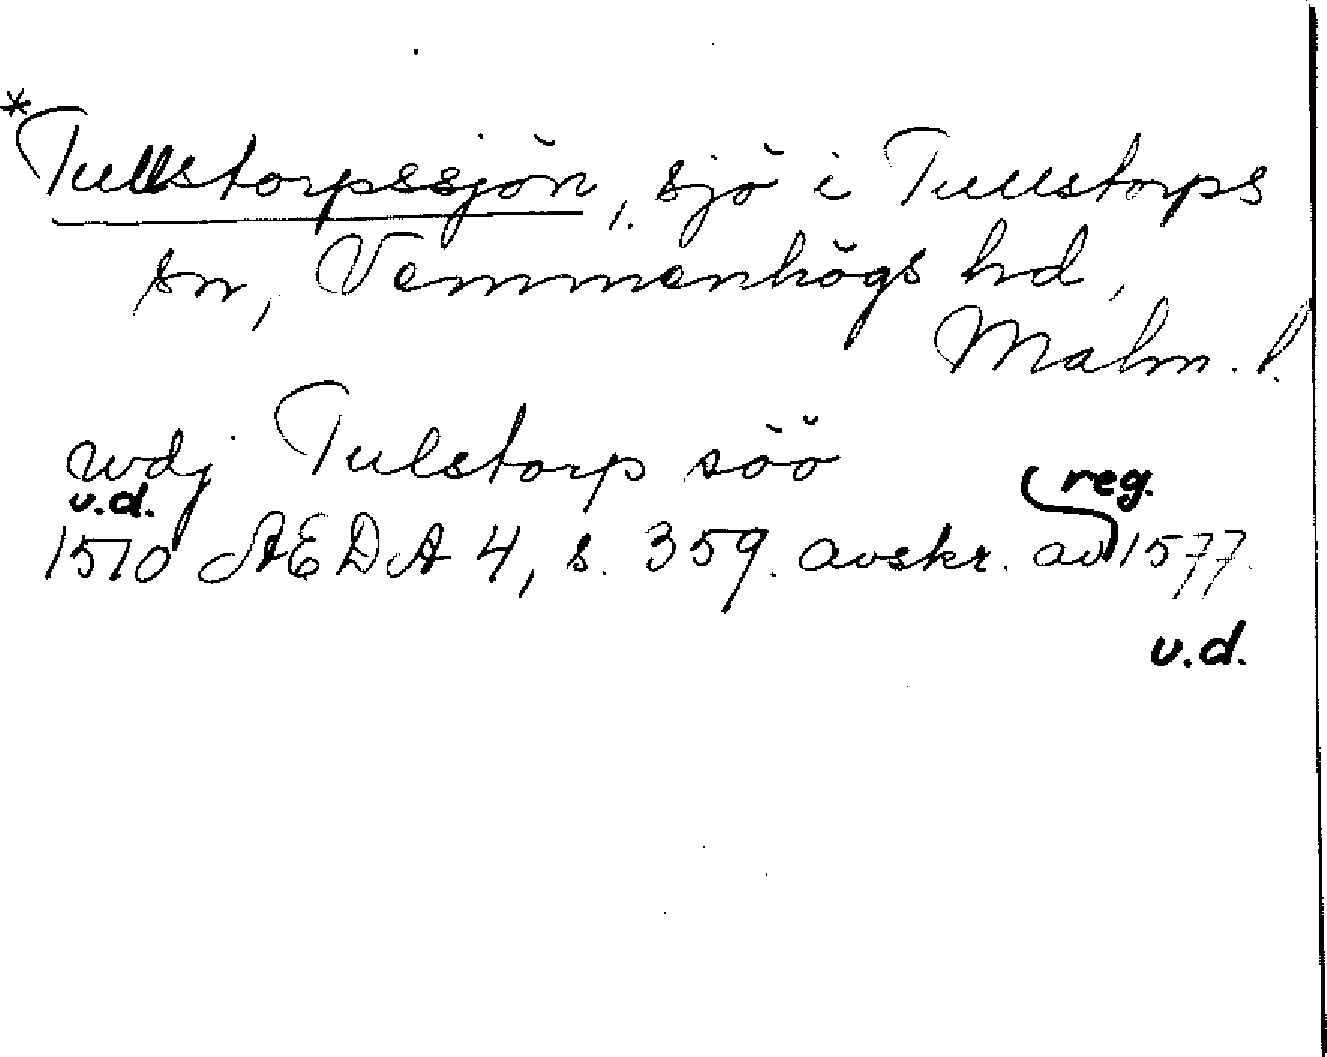 *Tullstorpssjön, sjö i Tullstorps
sn, Vemmenhögs hd,
Malm. l.
wdj Tulstorp söö
u.d.
1510 AEDA 4, s. 359. avskr. av reg. 1577.
u.d.